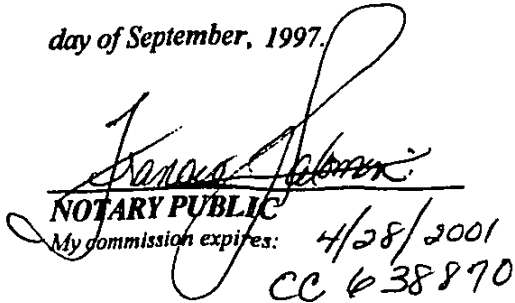 day of September, 1997.
NOTARY PUBLIC
My commission expires: 4/28/2001
CC 638870